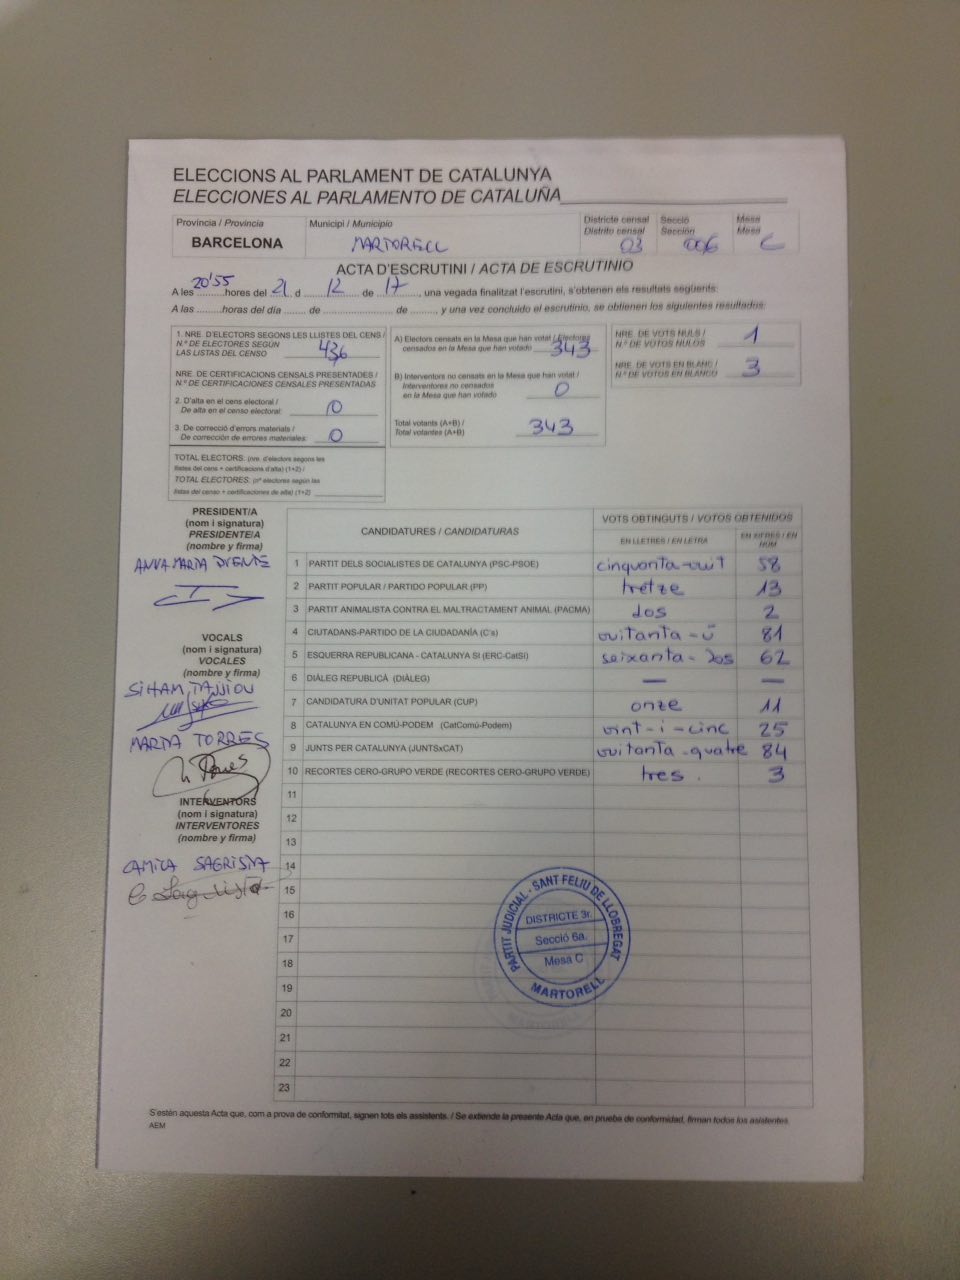 ELECCIONS AL PARLAMENT DE CATALUNYA
ELECCIONES AL PARLAMENTO DE CATALUÑA
Provincia / Provincia
BARCELONA
Municipi / Municipio
MARTORELL
Districte censal
Distrito censal
03
Secció
Sección
006
Mesa
Mesa
C
ACTA D'ESCRUTINI / ACTA DE ESCRUTINIO
A les 20'55 hores del 21 d 12 de 17, una vegada finalitzat l'escrutini, s'obtenen els resultats següents:
A las ........horas del día ....... de ........................ de ........, y una vez concluido el escrutinio, se obtienen los siguientes resultados:
1. NRE. D'ELECTORS SEGONS LES LLISTES DEL CENS /
N.º DE ELECTORES SEGÚN
LAS LISTAS DEL CENSO 436
NRE. DE CERTIFICACIONS CENSALS PRESENTADES /
N.º DE CERTIFICACIONES CENSALES PRESENTADAS
2. D'alta en el cens electoral /
De alta en el censo electoral: 0
3. De correcció d'errors materials /
De corrección de errores materiales: 0
TOTAL ELECTORS: (nre. d'electors segons les
llistes del cens + certificacions d'alta) (1+2) /
TOTAL ELECTORES: (nº electores según las
listas del censo + certificaciones de alta) (1+2)
A) Electors censats en la Mesa que han votat / Electores
censados en la Mesa que han votado 343
B) Interventors no censats en la Mesa que han votat /
Interventores no censados
en la Mesa que han votado 0
Total votants (A+B) /
Total votantes (A+B) 343
NRE. DE VOTS NULS /
N.º DE VOTOS NULOS 1
NRE. DE VOTS EN BLANC /
N.º DE VOTOS EN BLANCO 3
PRESIDENT/A
(nom i signatura)
PRESIDENTE/A
(nombre y firma)
VOCALS
(nom i signatura)
VOCALES
(nombre y firma)
SIHAM
MARTA TORRES
INTERVENTORS
(nom i signatura)
INTERVENTORES
(nombre y firma)
CAMILA SAGRISTA
CANDIDATURES / CANDIDATURAS
VOTS OBTINGUTS / VOTOS OBTENIDOS
EN LLETRES / EN LETRA
EN XIFRES / EN NÚM
1 PARTIT DELS SOCIALISTES DE CATALUNYA (PSC-PSOE) cinquanta-vuit 58
2 PARTIT POPULAR / PARTIDO POPULAR (PP) tretze 13
3 PARTIT ANIMALISTA CONTRA EL MALTRACTAMENT ANIMAL (PACMA) dos 2
4 CIUTADANS-PARTIDO DE LA CIUDADANÍA (C's) vuitanta-ú 81
5 ESQUERRA REPUBLICANA - CATALUNYA SÍ (ERC-CatSí) seixanta-dos 62
6 DIÀLEG REPUBLICÀ (DIÀLEG) — —
7 CANDIDATURA D'UNITAT POPULAR (CUP) onze 11
8 CATALUNYA EN COMÚ-PODEM (CatComú-Podem) vint-i-cinc 25
9 JUNTS PER CATALUNYA (JUNTSxCAT) vuitanta-quatre 84
10 RECORTES CERO-GRUPO VERDE (RECORTES CERO-GRUPO VERDE) tres. 3
11
12
13
14
15
16
17
18
19
20
21
22
23
PARTIT JUDICIAL - SANT FELIU DE LLOBREGAT
DISTRICTE 3r.
Secció 6a.
Mesa C
MARTORELL
S'estén aquesta Acta que, com a prova de conformitat, signen tots els assistents. / Se extiende la presente Acta que, en prueba de conformidad, firman todos los asistentes.
AEM